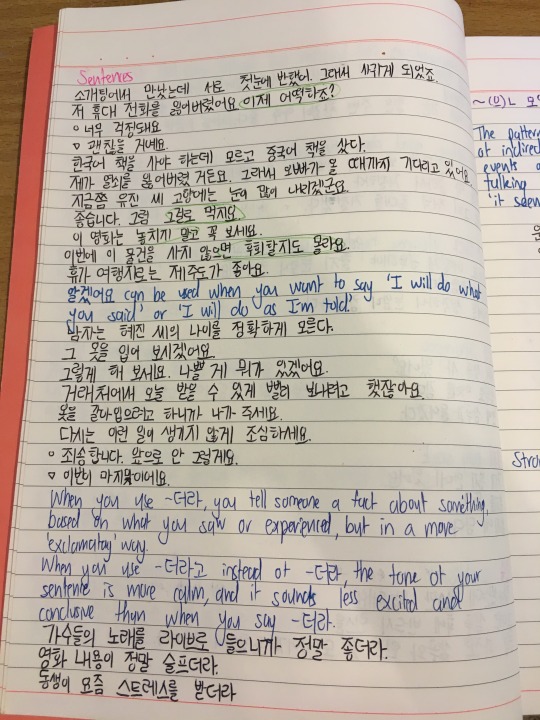 Sentences
소개팅에서 만났는데 서로 첫눈에 반했어. 그래서 사귀게 되었죠.
저 휴대 전화를 잃어버렸어요 이제 어떡하죠?
○ 너무 걱정돼요
▽ 괜찮을 거예요.
한국어 책을 사야 하는데 모르고 중국어 책을 샀다.
제가 열쇠를 잃어버렸 거든요. 그래서 오빠가 올 때까지 기다리고 있어요
지금쯤 유진 씨 고향에는 눈이 많이 내리겠군요.
좋습니다. 그럼 그걸로 먹지요.
이 영화는 놓치지 말고 꼭 보세요.
이번에 이 물건을 사지 않으면 후회할지도 몰라요.
휴가 여행지로는 제주도가 좋아요.
알겠어요 can be used when you want to say 'I will do what
you said' or 'I will do as I'm told.'
남자는 혜진 씨의 나이를 정확하게 모른다.
그 옷을 입어 보시겠어요
그렇게 해 보세요. 나쁠 게 뭐가 있겠어요.
거래처에서 오늘 받을 수 있게 빨리 보내라고 했잖아요
옷을 갈아입으려고 하니까 나가 주세요.
다시는 이런 일이 생기지 않게 조심하세요.
○ 죄송합니다. 앞으로 안 그럴게요.
▽ 이번이 마지막이에요.
When you use -더라, you tell someone a fact about something,
based on what you saw or experienced, but in a more
'exclamatory' way.
When you use -더라고 instead of -더라, the tone of your
sentence is more calm, and it sounds less excited and
conclusive than when you say -더라.
가수들의 노래를 라이브로 들으니까 정말 좋더라.
영화 내용이 정말 슬프더라.
동생이 요즘 스트레스를 받더라
The pattern
of indirect
events
talking
'it seem
Stro